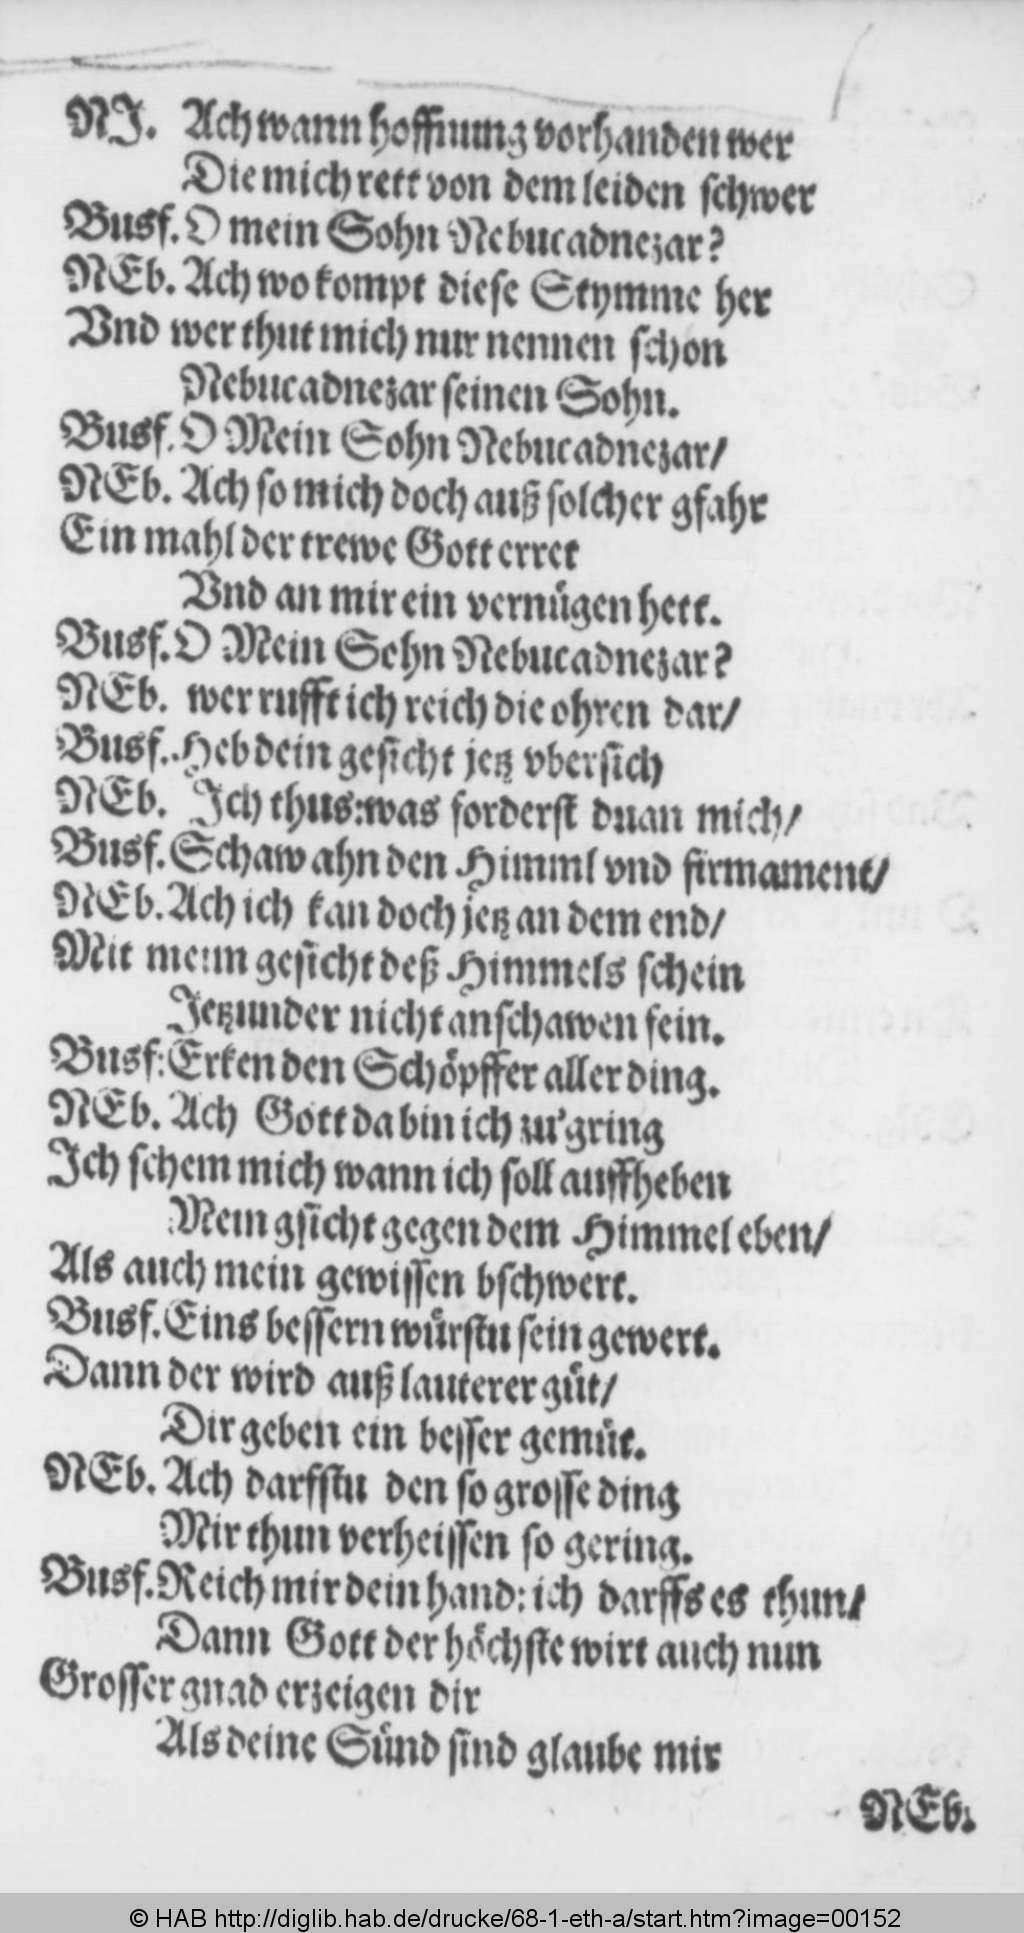 NJ. Ach wann hoffnung vorhanden wer
Die mich rett von dem leiden schwer
Busf. O mein Sohn Nebucadnezar?
NEb. Ach wo kompt diese Stymme her
Vnd wer thut mich nur nennen schon
Nebucadnezar seinen Sohn.
Busf. O Mein Sohn Nebucadnezar/
NEb. Ach so mich doch auß solcher gfahr
Ein mahl der trewe Gott erret
Vnd an mir ein vernügen hett.
Busf. O Mein Sohn Nebucadnezar?
NEb. wer rufft ich reich die ohren dar/
Busf. Heb dein gesicht jetz vbersich
NEb. Ich thus: was forderst du an mich/
Busf. Schaw ahn den Himml vnd firmament/
NEb. Ach ich kan doch jetz an dem end/
Mit meim gesicht deß Himmels schein
Jetzunder nicht anschawen fein.
Busf: Erken den Schöpffer aller ding.
NEb. Ach Gott da bin ich zu'gring
Ich schem mich wann ich soll auffheben
Mein gsicht gegen dem Himmel eben/
Als auch mein gewissen bschwert.
Busf. Eins bessern würstu sein gewert.
Dann der wird auß lauterer güt/
Dir geben ein besser gemüt.
NEb. Ach darfstu den so grosse ding
Mir thun verheissen so gering.
Busf. Reich mir dein hand: ich darffs es thun/
Dann Gott der höchste wirt auch nun
Grosser gnad erzeigen dir
Als deine Sünd sind glaube mir
NEb.
© HAB http://diglib.hab.de/drucke/68-1-eth-a/start.htm?image=00152